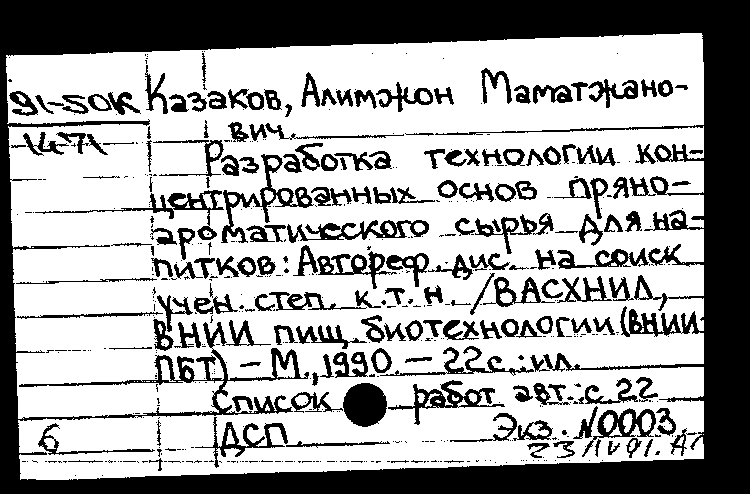 91-50К Казаков, Алимжон Маматжано-
1471 вич.
Разработка технологии кон-
центрированных основ пряно-
ароматического сырья для на-
питков: Автореф. дис. на соиск
учен. степ. к.т.н. /ВАСХНИЛ,
ВНИИ пищ. биотехнологии (ВНИИ
ПБТ) – М., 1990. – 22 с.: ил.
Список работ авт.: с 22
6 ДСП. Экз. N0003.
23/IV 91.